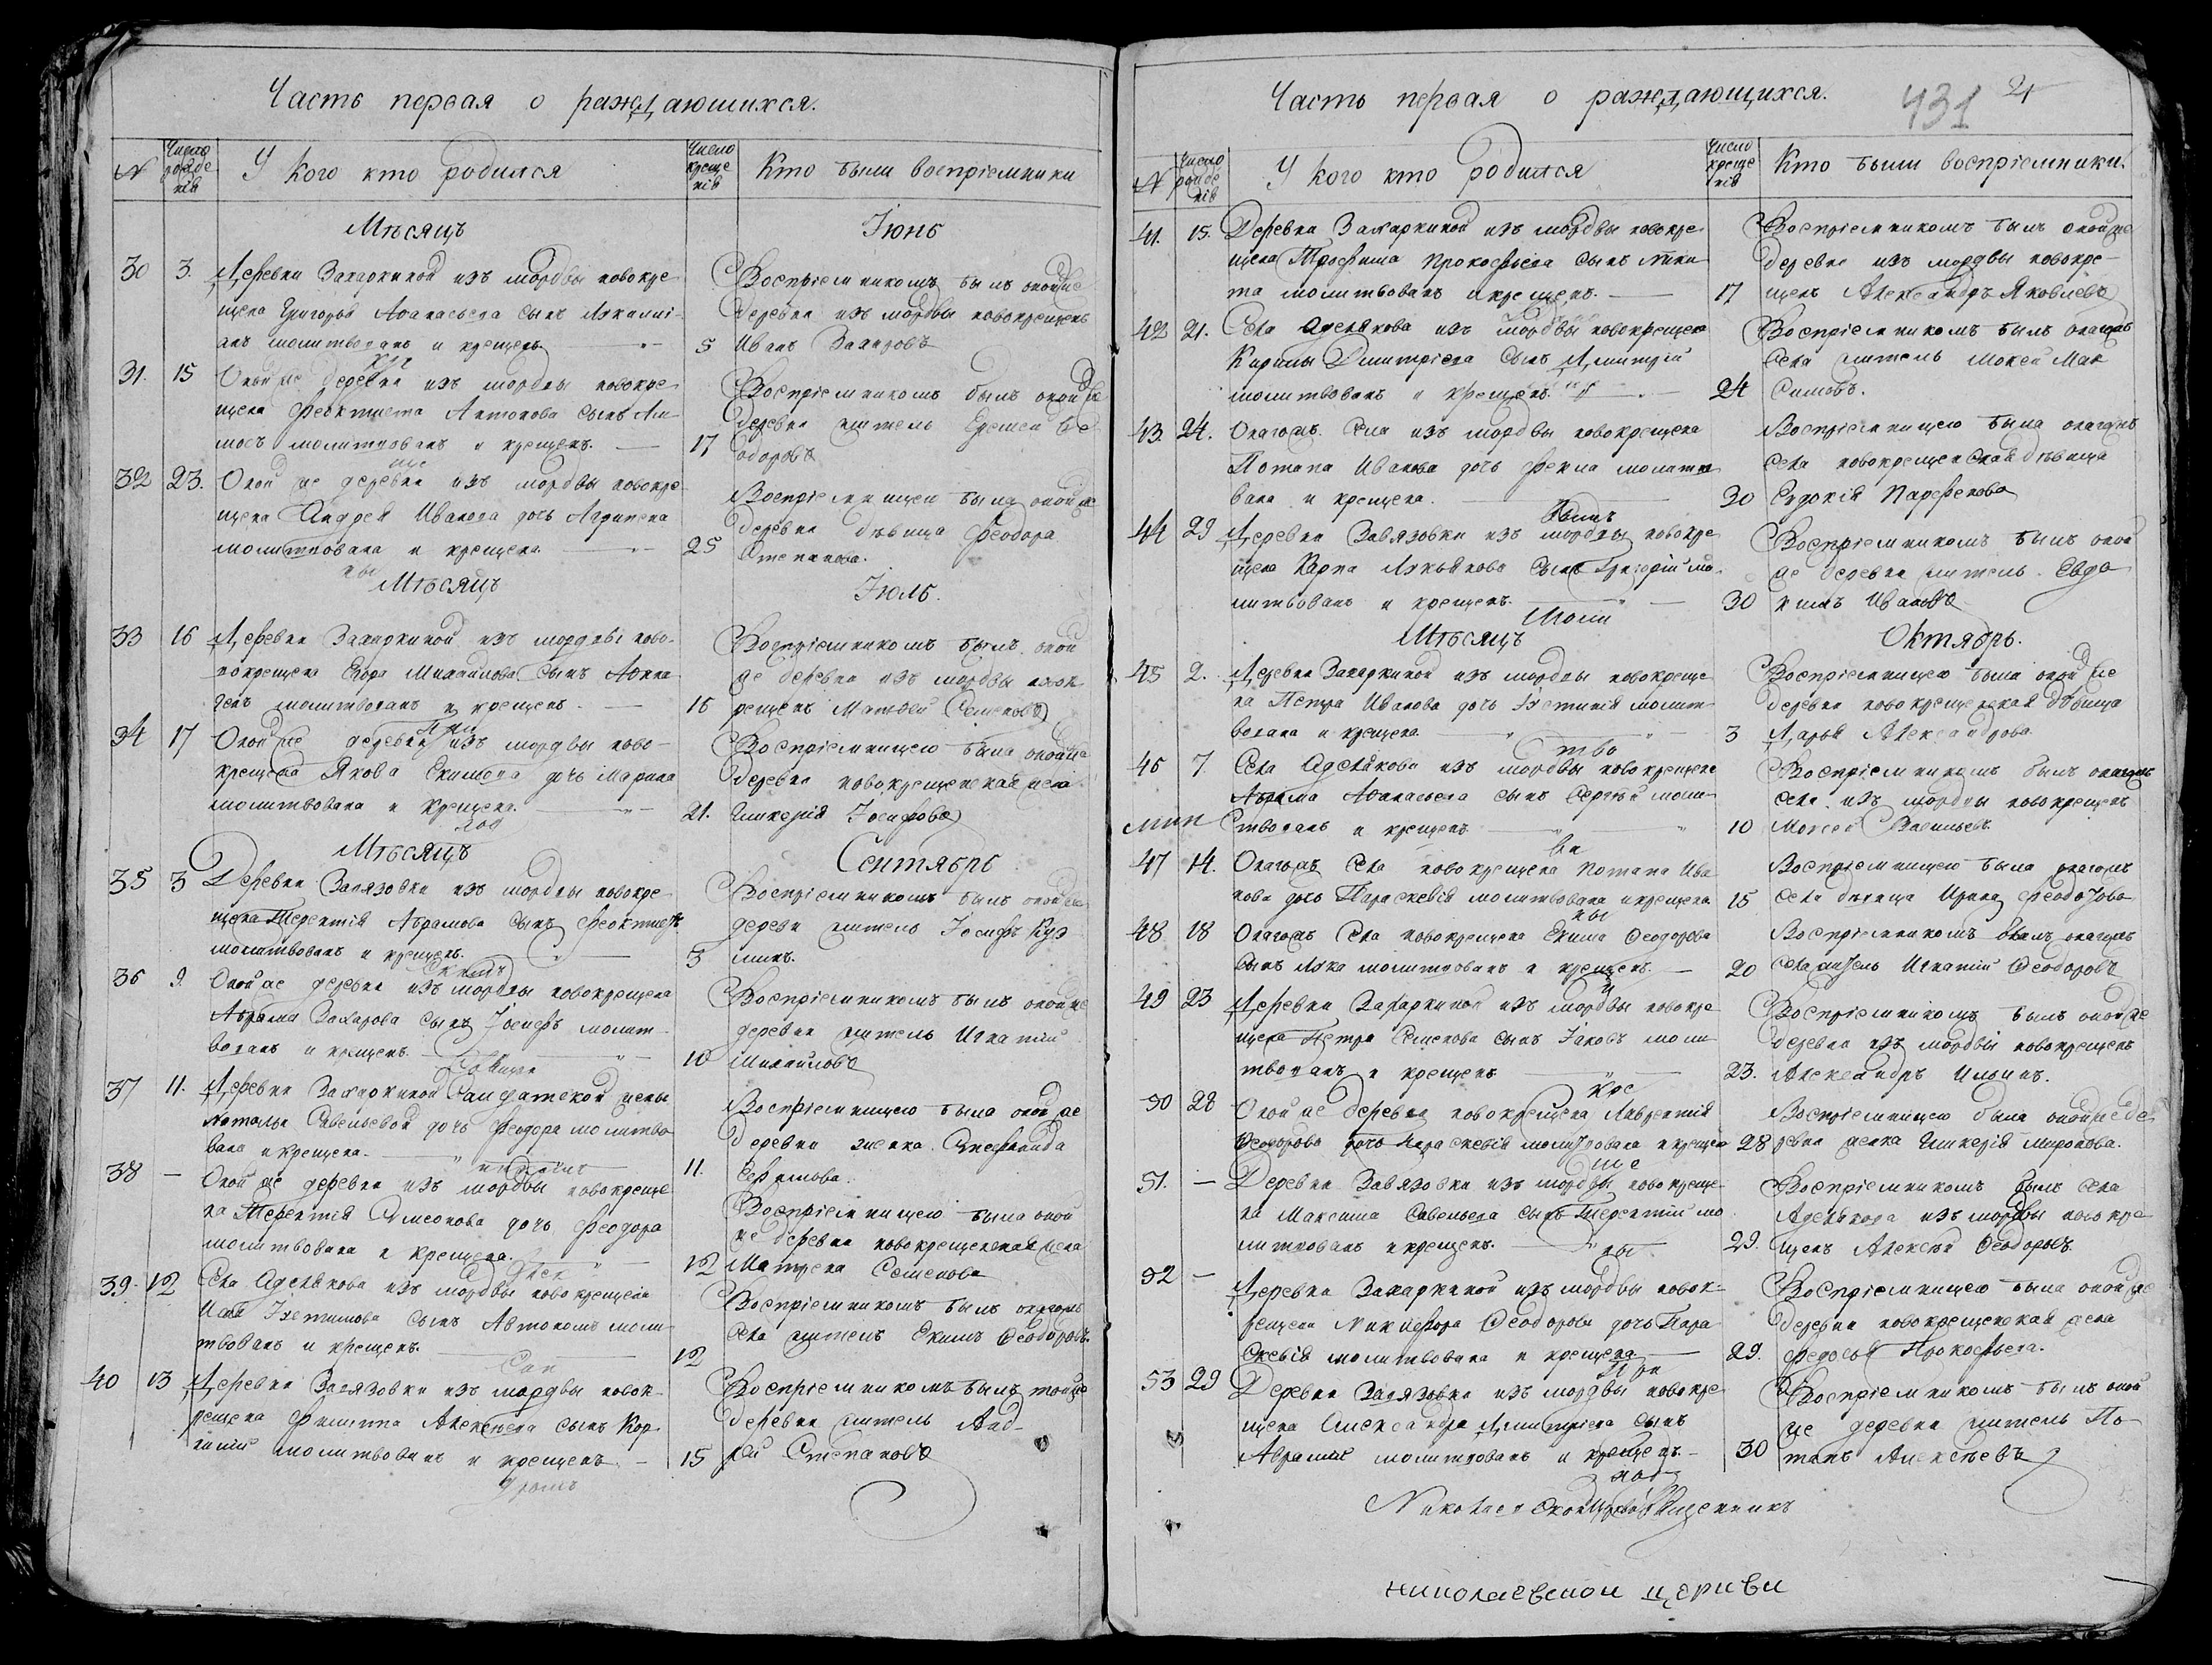 Часть первая о раждающихся.
№
Число рожденія
У кого кто родился
Число крещенія
Кто были воспріемники
Мѣсяцъ
Іюнь
30 3. Деревни Захаркиной изъ мордвы новокре
щена Григорья Аѳанасьева сынъ
анъ молитвованъ и крещенъ
5
Воспріемникомъ былъ оной же
деревни изъ мордвы новокрещенъ
Иванъ Захаровъ
31. 15 Оной же деревни изъ мордвы новокре
щена Феоктиста Антонова сынъ Ам
мосъ молитвованъ и крещенъ.
17
Воспріемникомъ былъ оной же
деревни житель Еремей Ѳе
одоровъ
32 23. Оной же деревни изъ мордвы новокре
щена Андрея Иванова дочь Агрипена
молитвована и крещена
25
Воспріемницею была оной же
деревни дѣвица Феодора
Степанова.
Мѣсяцъ
Іюль.
33 16 Деревни Захаркиной изъ мордвы ново
новокрещена Егора Михайлова сынъ
молитвованъ и крещенъ
16
Воспріемникомъ былъ оной
же деревни изъ мордвы новок
рещенъ Матвей Семеновъ
34 17 Оной же деревни изъ мордвы ново
крещена Якова Екимова дочь Марина
молитвована и крещена.
21.
Воспріемницею была оной же
деревни новокрещенская жена
Гликерія Іосифова
Мѣсяцъ
Сентябрь
35 3 Деревни Завязовки изъ мордвы новокре
щена Терентія Абрамова сынъ Феоктистъ
молитвованъ и крещенъ.
3
Воспріемникомъ былъ оной же
деревни житель Іосифъ Куз
минъ.
36 9 Оной же деревни изъ мордвы новокрещена
Абрама Захарова сынъ Іосифъ молит
вованъ и крещенъ
10
Воспріемникомъ былъ оной же
деревни житель Игнатій
Михайловъ
37 11. Деревни Захаркиной солдатской жены
Натальи Савельевой дочь Феодора молитво
вана и крещена.
11.
Воспріемницею была оной же
деревни женка Стефанида
38 — Оной же деревни изъ мордвы новокреще
на Терентія Симеонова дочь Феодора
молитвована и крещена.
12
Воспріемницею была оной
же деревни новокрещенская жена
Матрена Семенова
39. 12 Села Аделякова изъ мордвы новокрещена
сынъ Автономъ моли
твованъ и крещенъ.
12
Воспріемникомъ былъ онагожъ
села житель Екимъ Ѳеодоровъ
40 13 Деревни Завязовки изъ мордвы новок
рещена Филиппа Алексѣева сынъ Кор
нилій молитвованъ и крещенъ
15
Воспріемникомъ былъ тойже
деревни житель Анд
рей Степановъ
Часть первая о раждающихся.
431
№
Число рожденія
У кого кто родился
Число крещенія
Кто были воспріемники.
41. 15. Деревни Захаркиной изъ мордвы новокре
щена Трофима Прокофьева сынъ Ники
та молитвованъ и крещенъ.
17
Воспріемникомъ былъ оной же
деревни изъ мордвы новокре
щенъ Александръ Яковлевъ
42 21. Села Аделякова изъ мордвы новокрещена
Кирилы Дмитріева сынъ Дмитрій
молитвованъ и крещенъ.
24
Воспріемникомъ былъ онагожъ
села житель Мокей Мак
симовъ.
43. 24. Онагожъ села изъ мордвы новокрещена
Потапа Иванова дочь Фекла молитво
вана и крещена.
30
Воспріемницею была онагожъ
села новокрещенская дѣвица
Евдокія Парфенова
44 29 Деревни Завязовки изъ мордвы новокре
щена Карпа Лукьянова сынъ Григорій мо
литвованъ и крещенъ.
30
Воспріемникомъ былъ оной
же деревни житель Евдо
кимъ Ивановъ
Мѣсяцъ
Октябрь.
45 2. Деревни Захаркиной изъ мордвы новокреще
на Петра Иванова дочь молит
вована и крещена
3
Воспріемницею была оной же
деревни новокрещенская дѣвица
Дарья Александрова
46 7. Села Аделякова изъ мордвы новокрещена
Абрама Аѳанасьева сынъ Сергѣй моли
ствованъ и крещенъ
10
Воспріемникомъ былъ онагожъ
села изъ мордвы новокрещенъ
Мокей Васильевъ
47 14. Онагожъ села новокрещена Потапа Ива
нова дочь Параскевія молитвована и крещена
15
Воспріемницею была онагожъ
села дѣвица Ирина
48 18 Онагожъ села новокрещена Екима Ѳеодорова
сынъ Лука молитвованъ и крещенъ.
20
Воспріемникомъ былъ онагожъ
села житель Игнатій Ѳеодоровъ
49 23 Деревни Захаркиной изъ мордвы новокре
щена Петра Семенова сынъ Іаковъ моли
твованъ и крещенъ
23.
Воспріемникомъ былъ оной же
деревни изъ мордвы новокрещенъ
Александръ Ильинъ.
50 28 Оной же деревни новокрещена Лаврентія
Ѳеодорова дочь Параскевія молитвована и крещена
28
Воспріемницею была оной же де
ревни женка Гликерія Миронова.
51. — Деревни Завязовки изъ мордвы новокреще
на Максима Савельева сынъ Терентій мо
литвованъ и крещенъ.
29.
Воспріемникомъ былъ села
Аделякова изъ мордвы новокре
щенъ Алексѣй Ѳеодоровъ
52 — Деревни Захаркиной изъ мордвы новок
рещена Никифора Ѳеодорова дочь Пара
скевія молитвована и крещена
29.
Воспріемницею была оной же
деревни новокрещенская жена
Федосья Прокофьева.
53 29 Деревни Завязовки изъ мордвы новокре
щена Александра Дмитріева сынъ
Аврамій молитвованъ и крещенъ
30
Воспріемникомъ былъ оной
же деревни житель По
тапъ Алексѣевъ
николаевской церкви